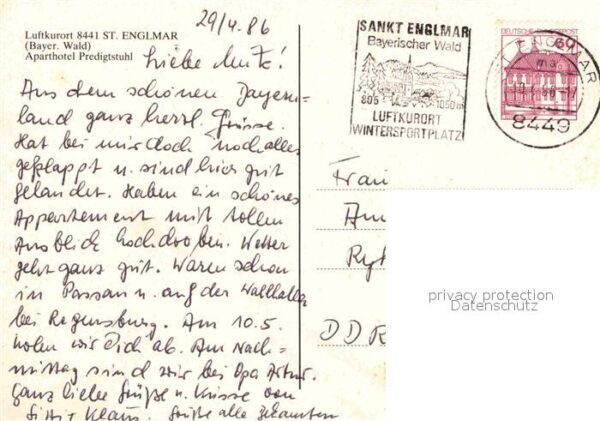 29/4.86
Luftkurort 8441 ST. ENGLMAR
(Bayer. Wald)
Aparthotel Predigtstuhl
Liebe Mutz!
Aus dem schönen Bayern-
land ganz herzl. Grüsse.
Hat bei mir doch noch alles
geklappt u. sind hier gut
gelandet. Haben ein schönes
Appartement mit tollen
Ausblick hochdroben. Wetter
geht ganz gut. Waren schon
in Passau u. auf der Wallhalla
bei Regensburg. Am 10.5.
holen wir Dich ab. Am Nach-
mittag sind wir bei Opa Artur.
Ganz liebe Grüße u. Küsse von
Klaus. Grüße alle Bekannten
SANKT ENGLMAR
Bayerischer Wald
805 - 1050 m
LUFTKURORT
WINTERSPORTPLATZ
DEUTSCHE BUNDESPOST
60
ST. ENGLMAR
8449
Frau
Am
DDR
privacy protection
Datenschutz